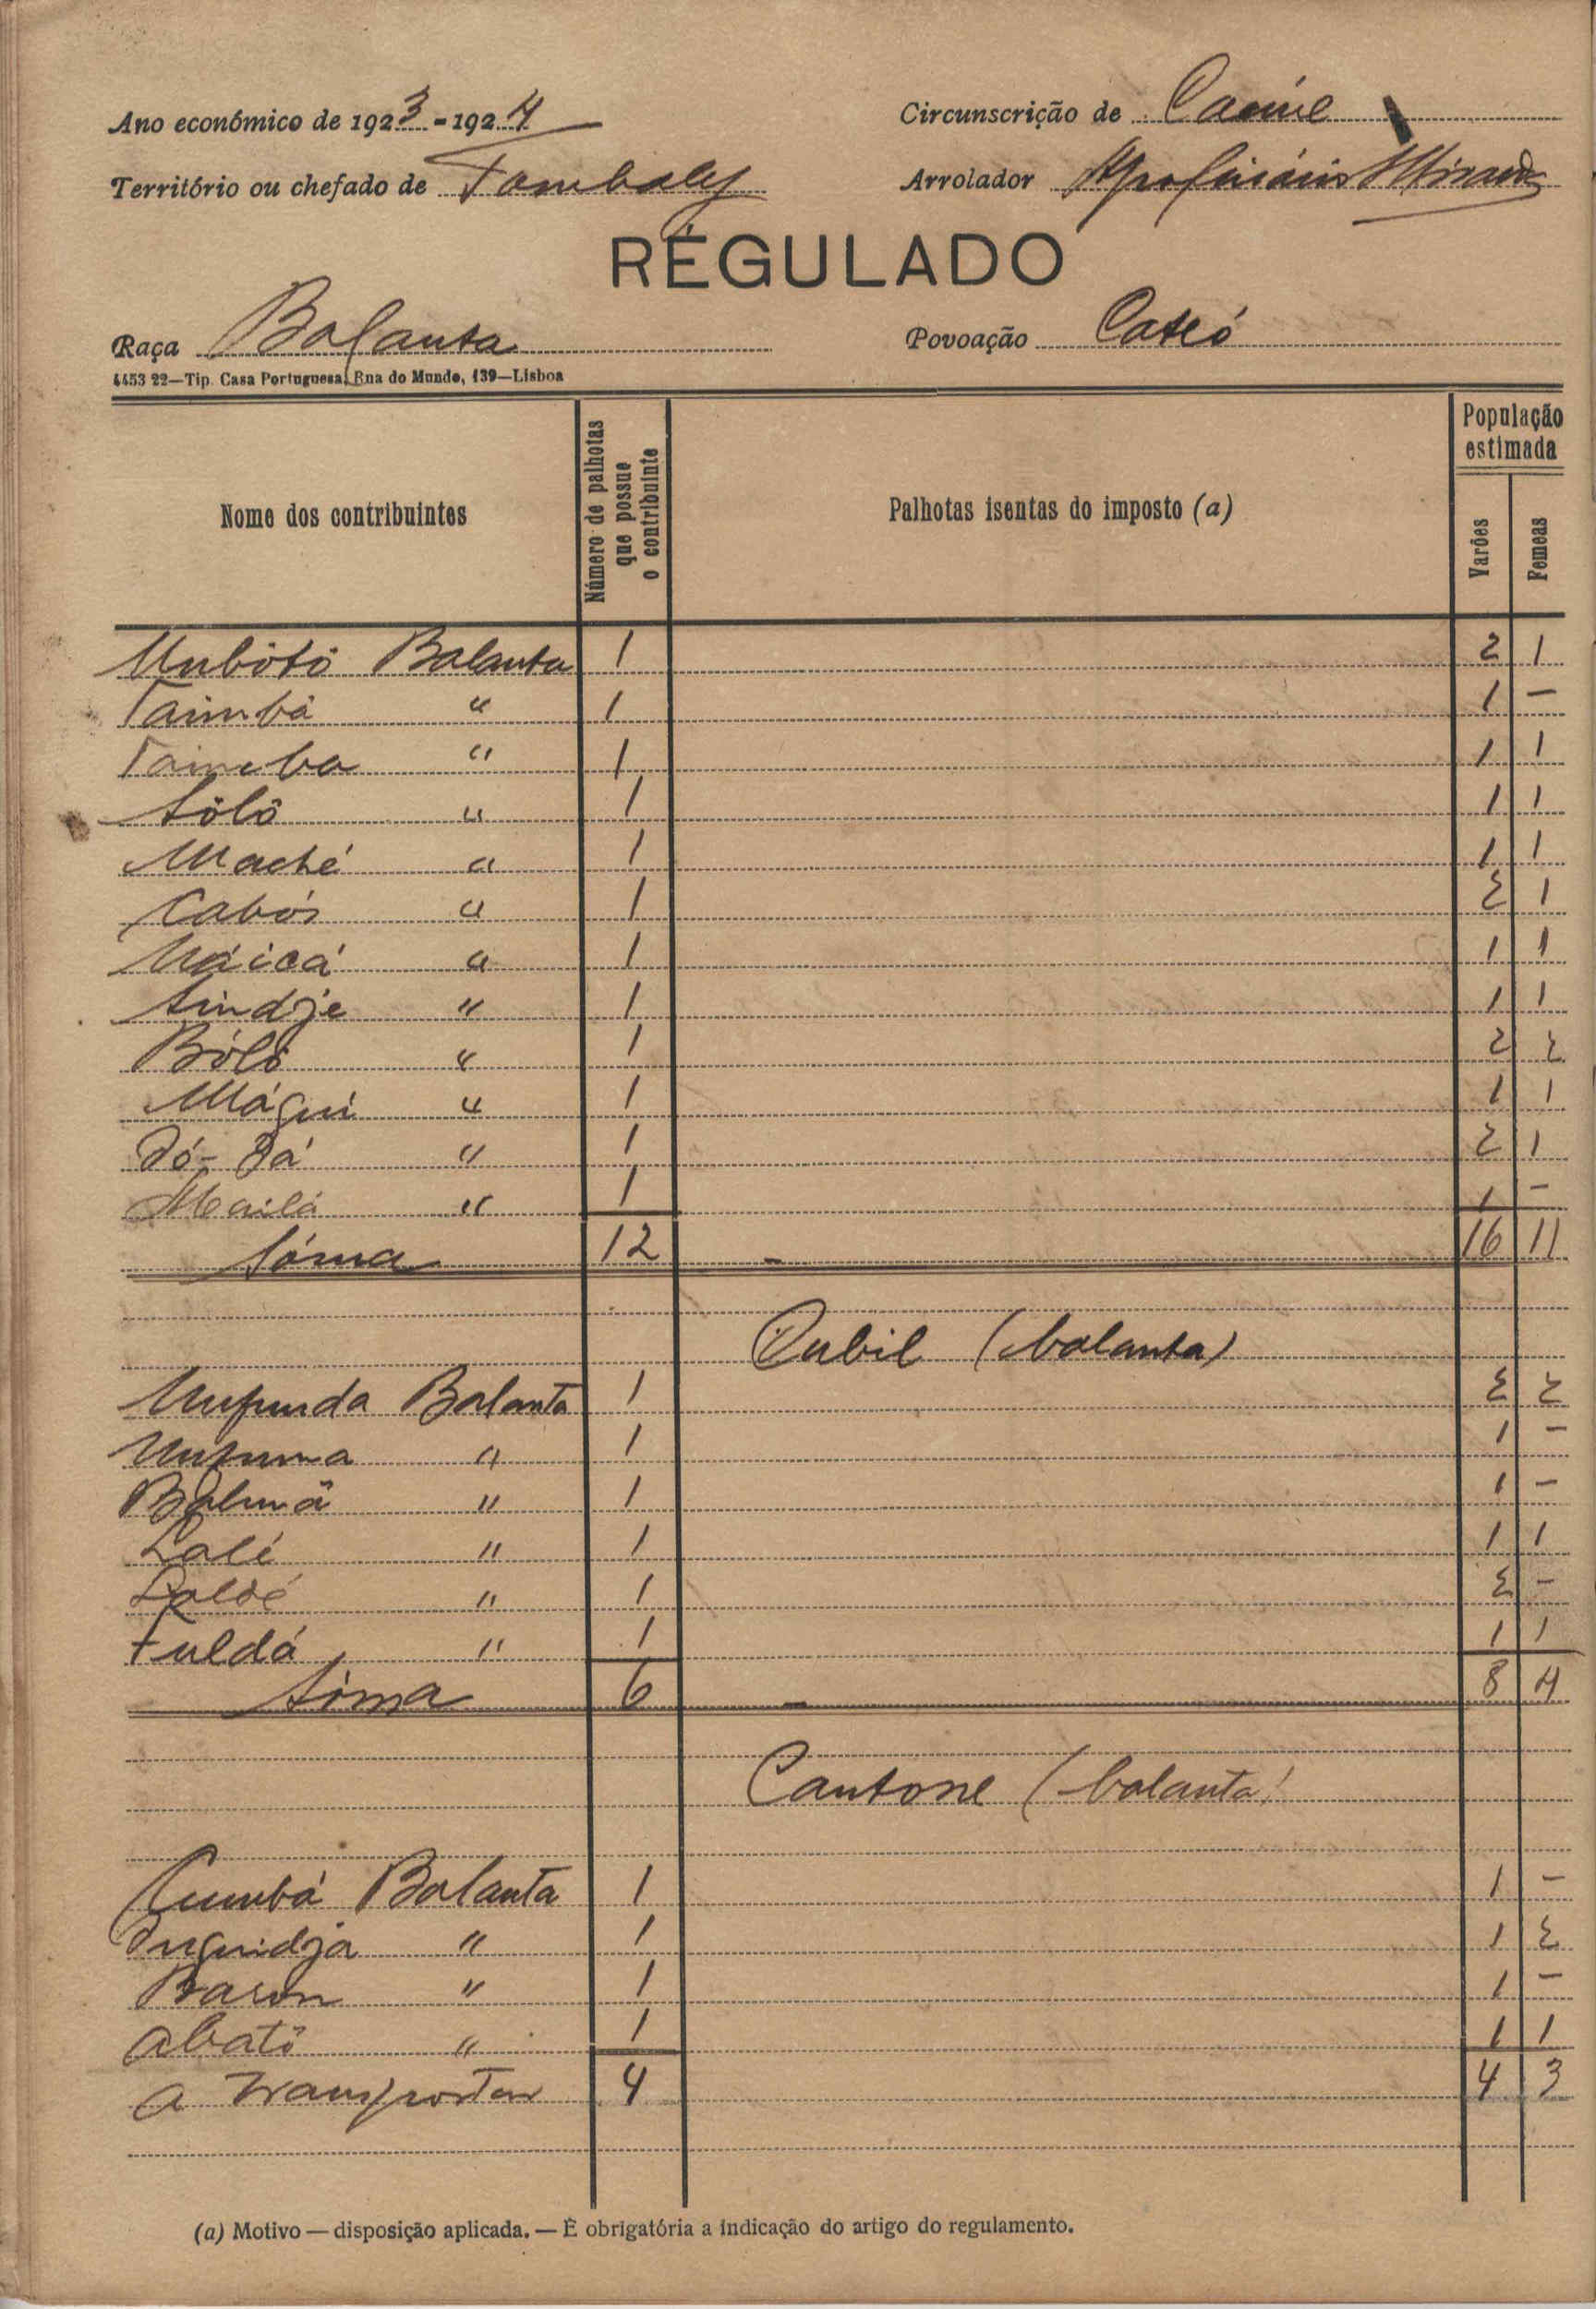 Ano económico de 1923-1924
Circunscrição de Cacine
Território ou chefado de Tombaly
Arrolador
RÉGULADO
Raça Balanta
Povoação Catió
4453 22—Tip. Casa Portuguesa, Rua do Mundo, 139—Lisboa
Nome dos contribuintes
Número de palhotas que possue o contribuinte
Palhotas isentas do imposto (a)
População estimada
Varões
Femeas
Unbôtô Balanta 1 2 1
Taimbâ " 1 1 -
Taimba " 1 1 1
Sôlô " 1 1 1
Maché " 1 1 1
Cabói " 1 2 1
Uáicá " 1 1 1
Sindje " 1 1 1
Bólô " 1 2 2
Mágui " 1 1 1
" 1 2 1
Mailá " 1 1 -
Sóma 12 - 16 11
Cubil (balanta)
Unfunda Balanta 1 2 2
" 1 1 -
" 1 1 -
Lalé " 1 1 1
" 1 2 -
Fuldá " 1 1 1
Sóma 6 - 8 4
Cantone (balanta)
Cumbá Balanta 1 1 -
Inguidja " 1 1 2
" 1 1 -
Abatô " 1 1 1
A transportar 4 4 3
(a) Motivo — disposição aplicada. — É obrigatória a indicação do artigo do regulamento.